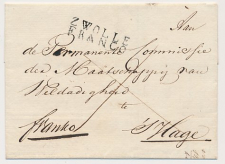 Aan
ZWOLLE
FRANCO
de Permanente Commissie
der Maatschappij van
Weldadigheid
te
franko
's Hage